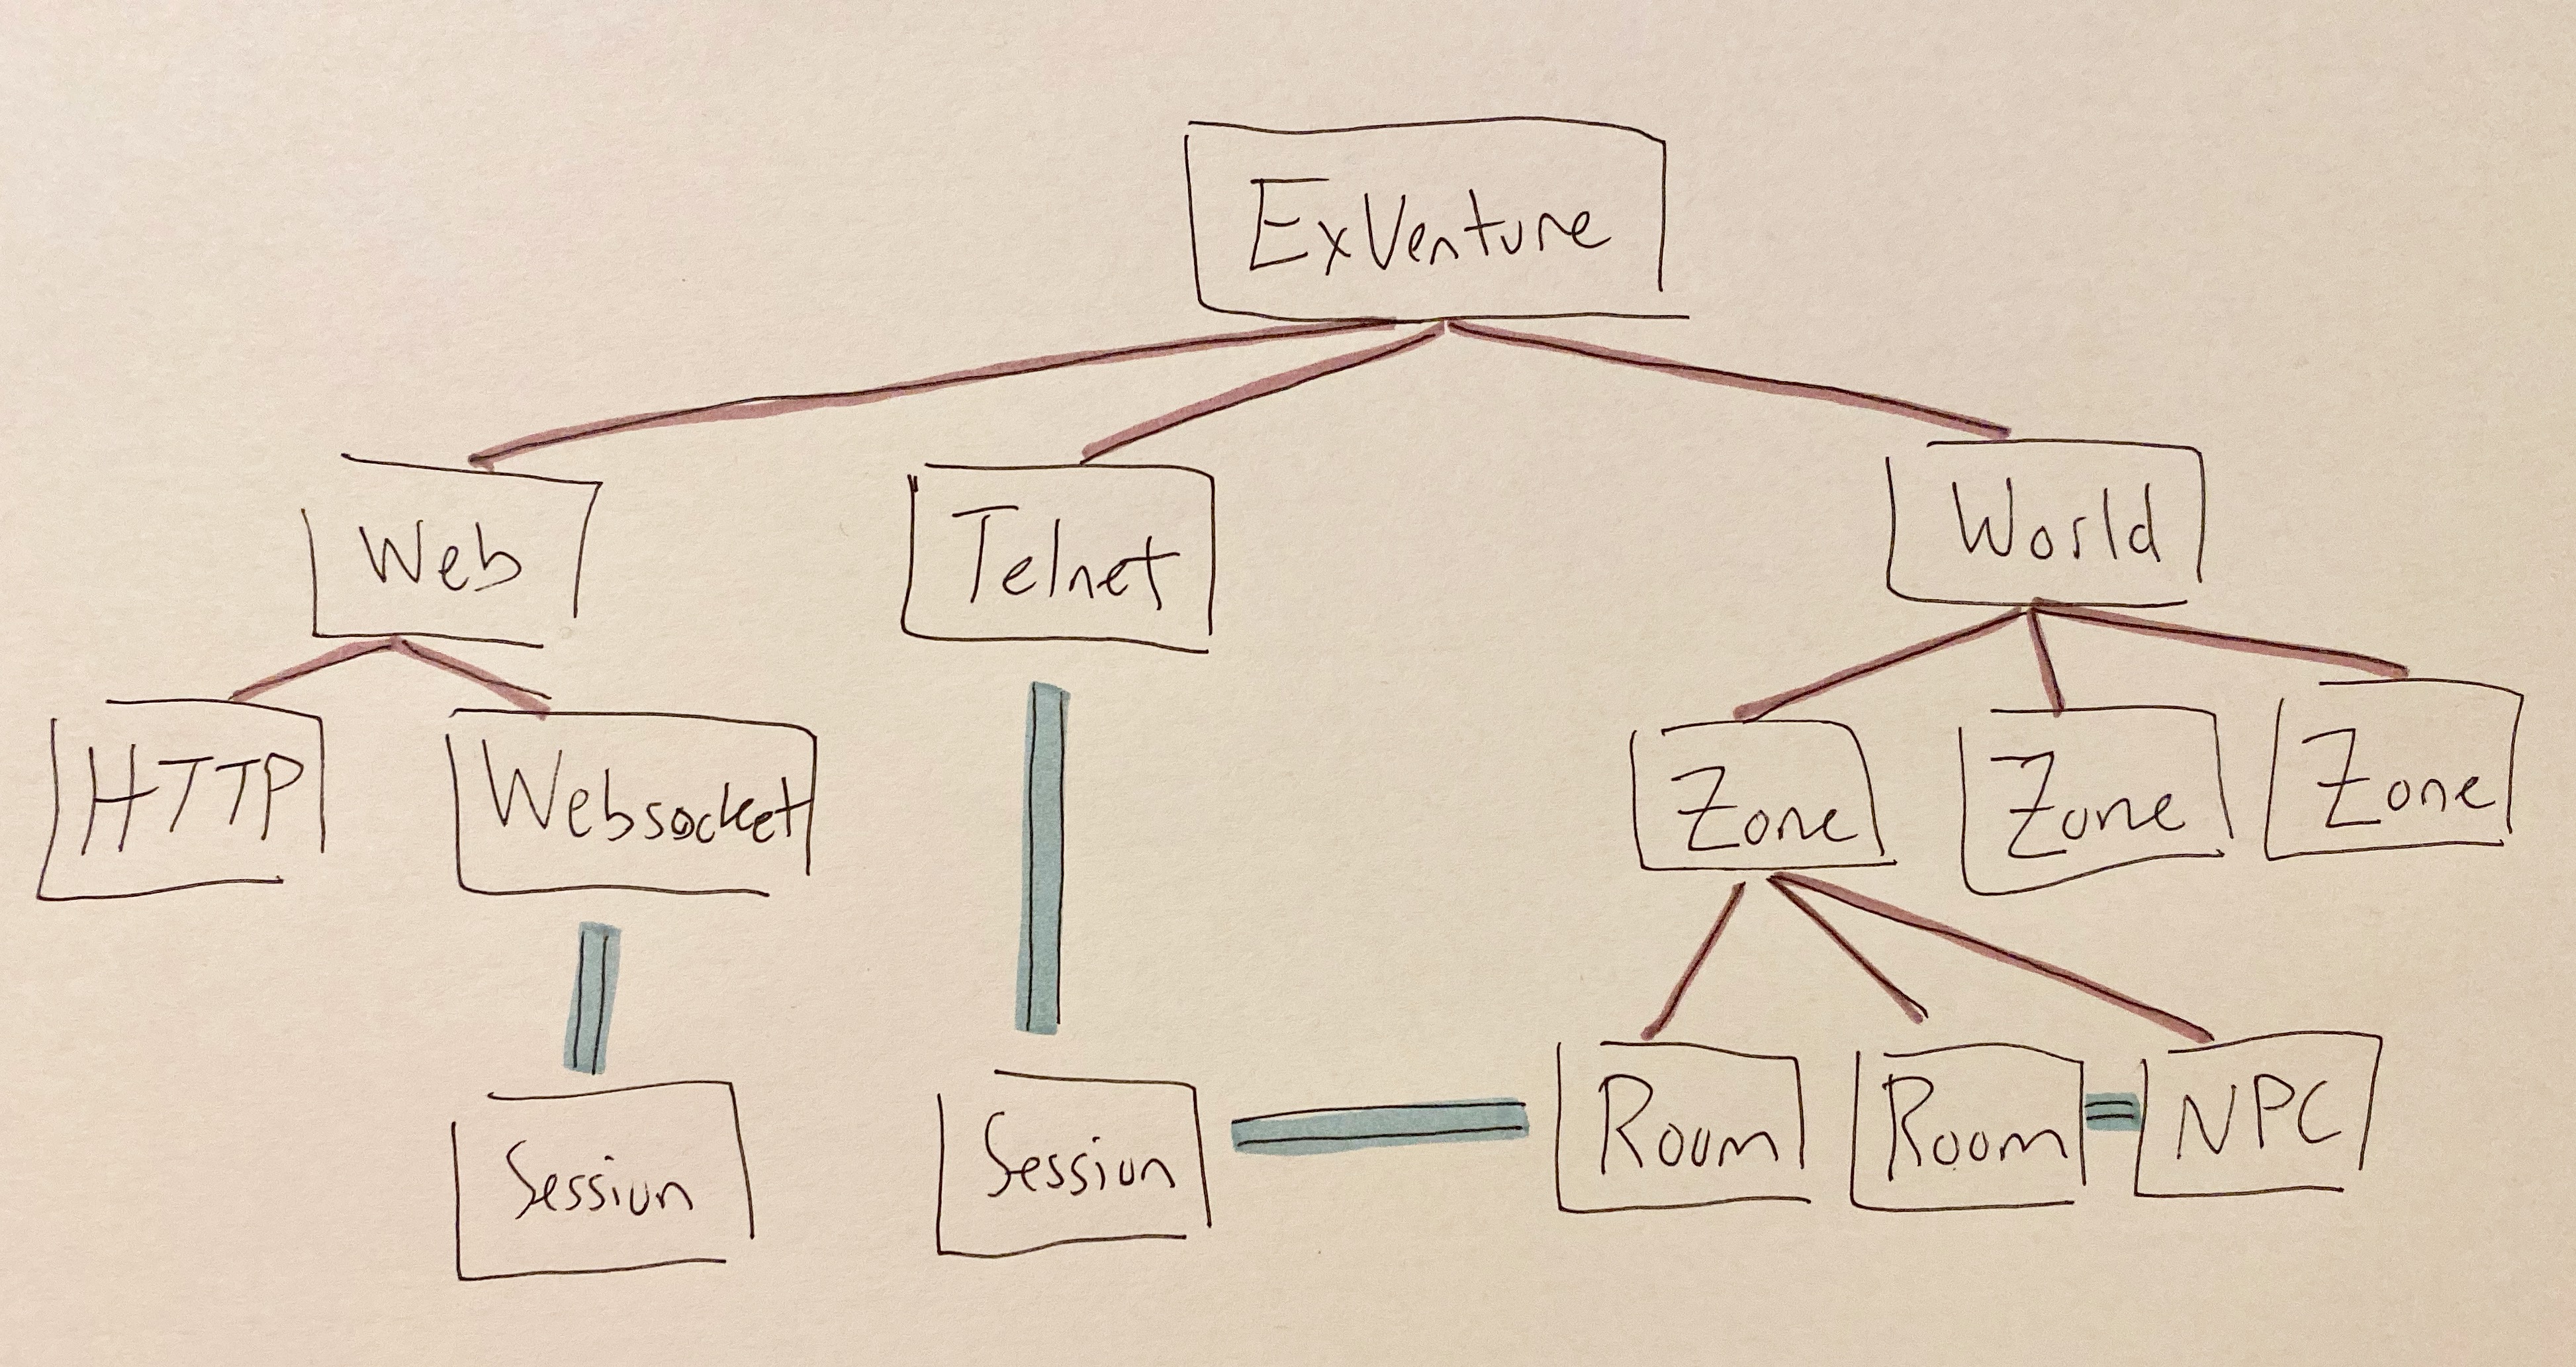 ExVenture
Web
Telnet
World
HTTP
Websocket
Zone
Zone
Zone
Session
Session
Room
Room
NPC